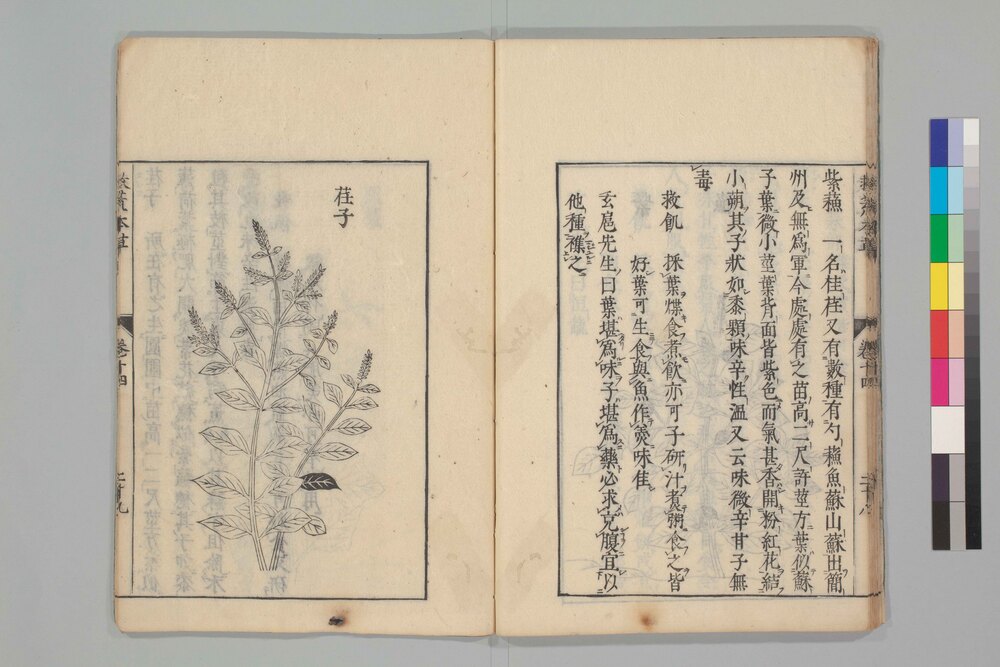 紫蘓 一名桂荏又有數種有勺蘓魚蘇山蘇出簡
州及無為軍今處處有之苗高二尺許莖方葉似蘇
子葉微小莖葉背面皆紫色而氣甚香開粉紅花結
小蒴其子狀如黍顆味辛性溫又云味微辛甘子無
毒
救飢 採葉煠食煮飲亦可子研汁煑粥食之皆
好葉可生食與魚作羮味佳
玄扈先生曰葉堪為味子堪為藥必求克腹宜以
他種襍之
荏子
救荒本草
卷十四
二十九
卷十四
二十八